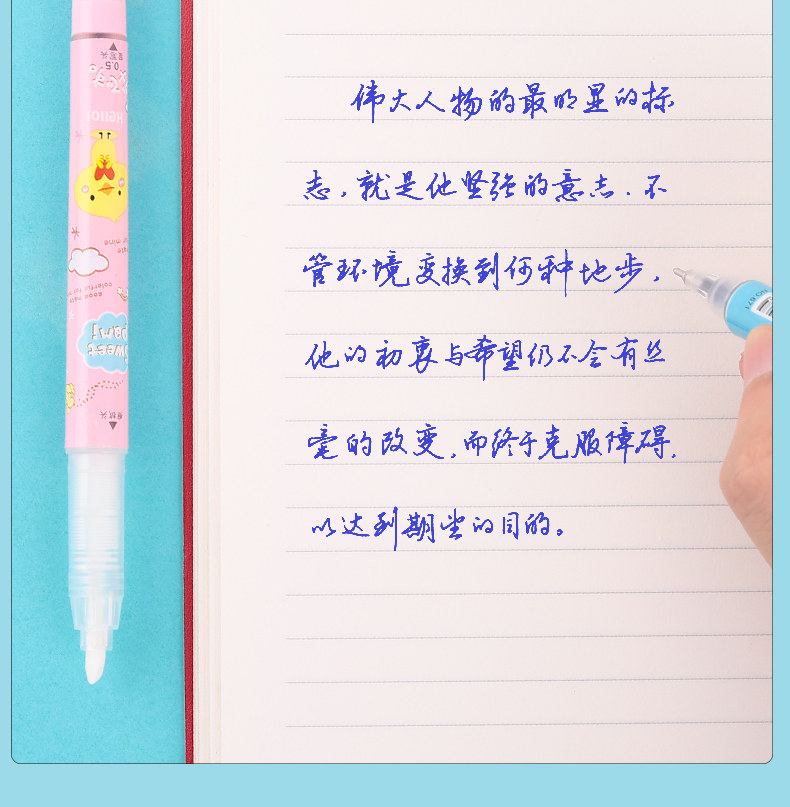 伟大人物的最明显的标
志,就是他坚强的意志.不
管环境变换到何种地步,
他的初衷与希望仍不会有丝
毫的改变,而终于克服障碍,
以达到期望的目的。
0.5
Hello!
Sweet